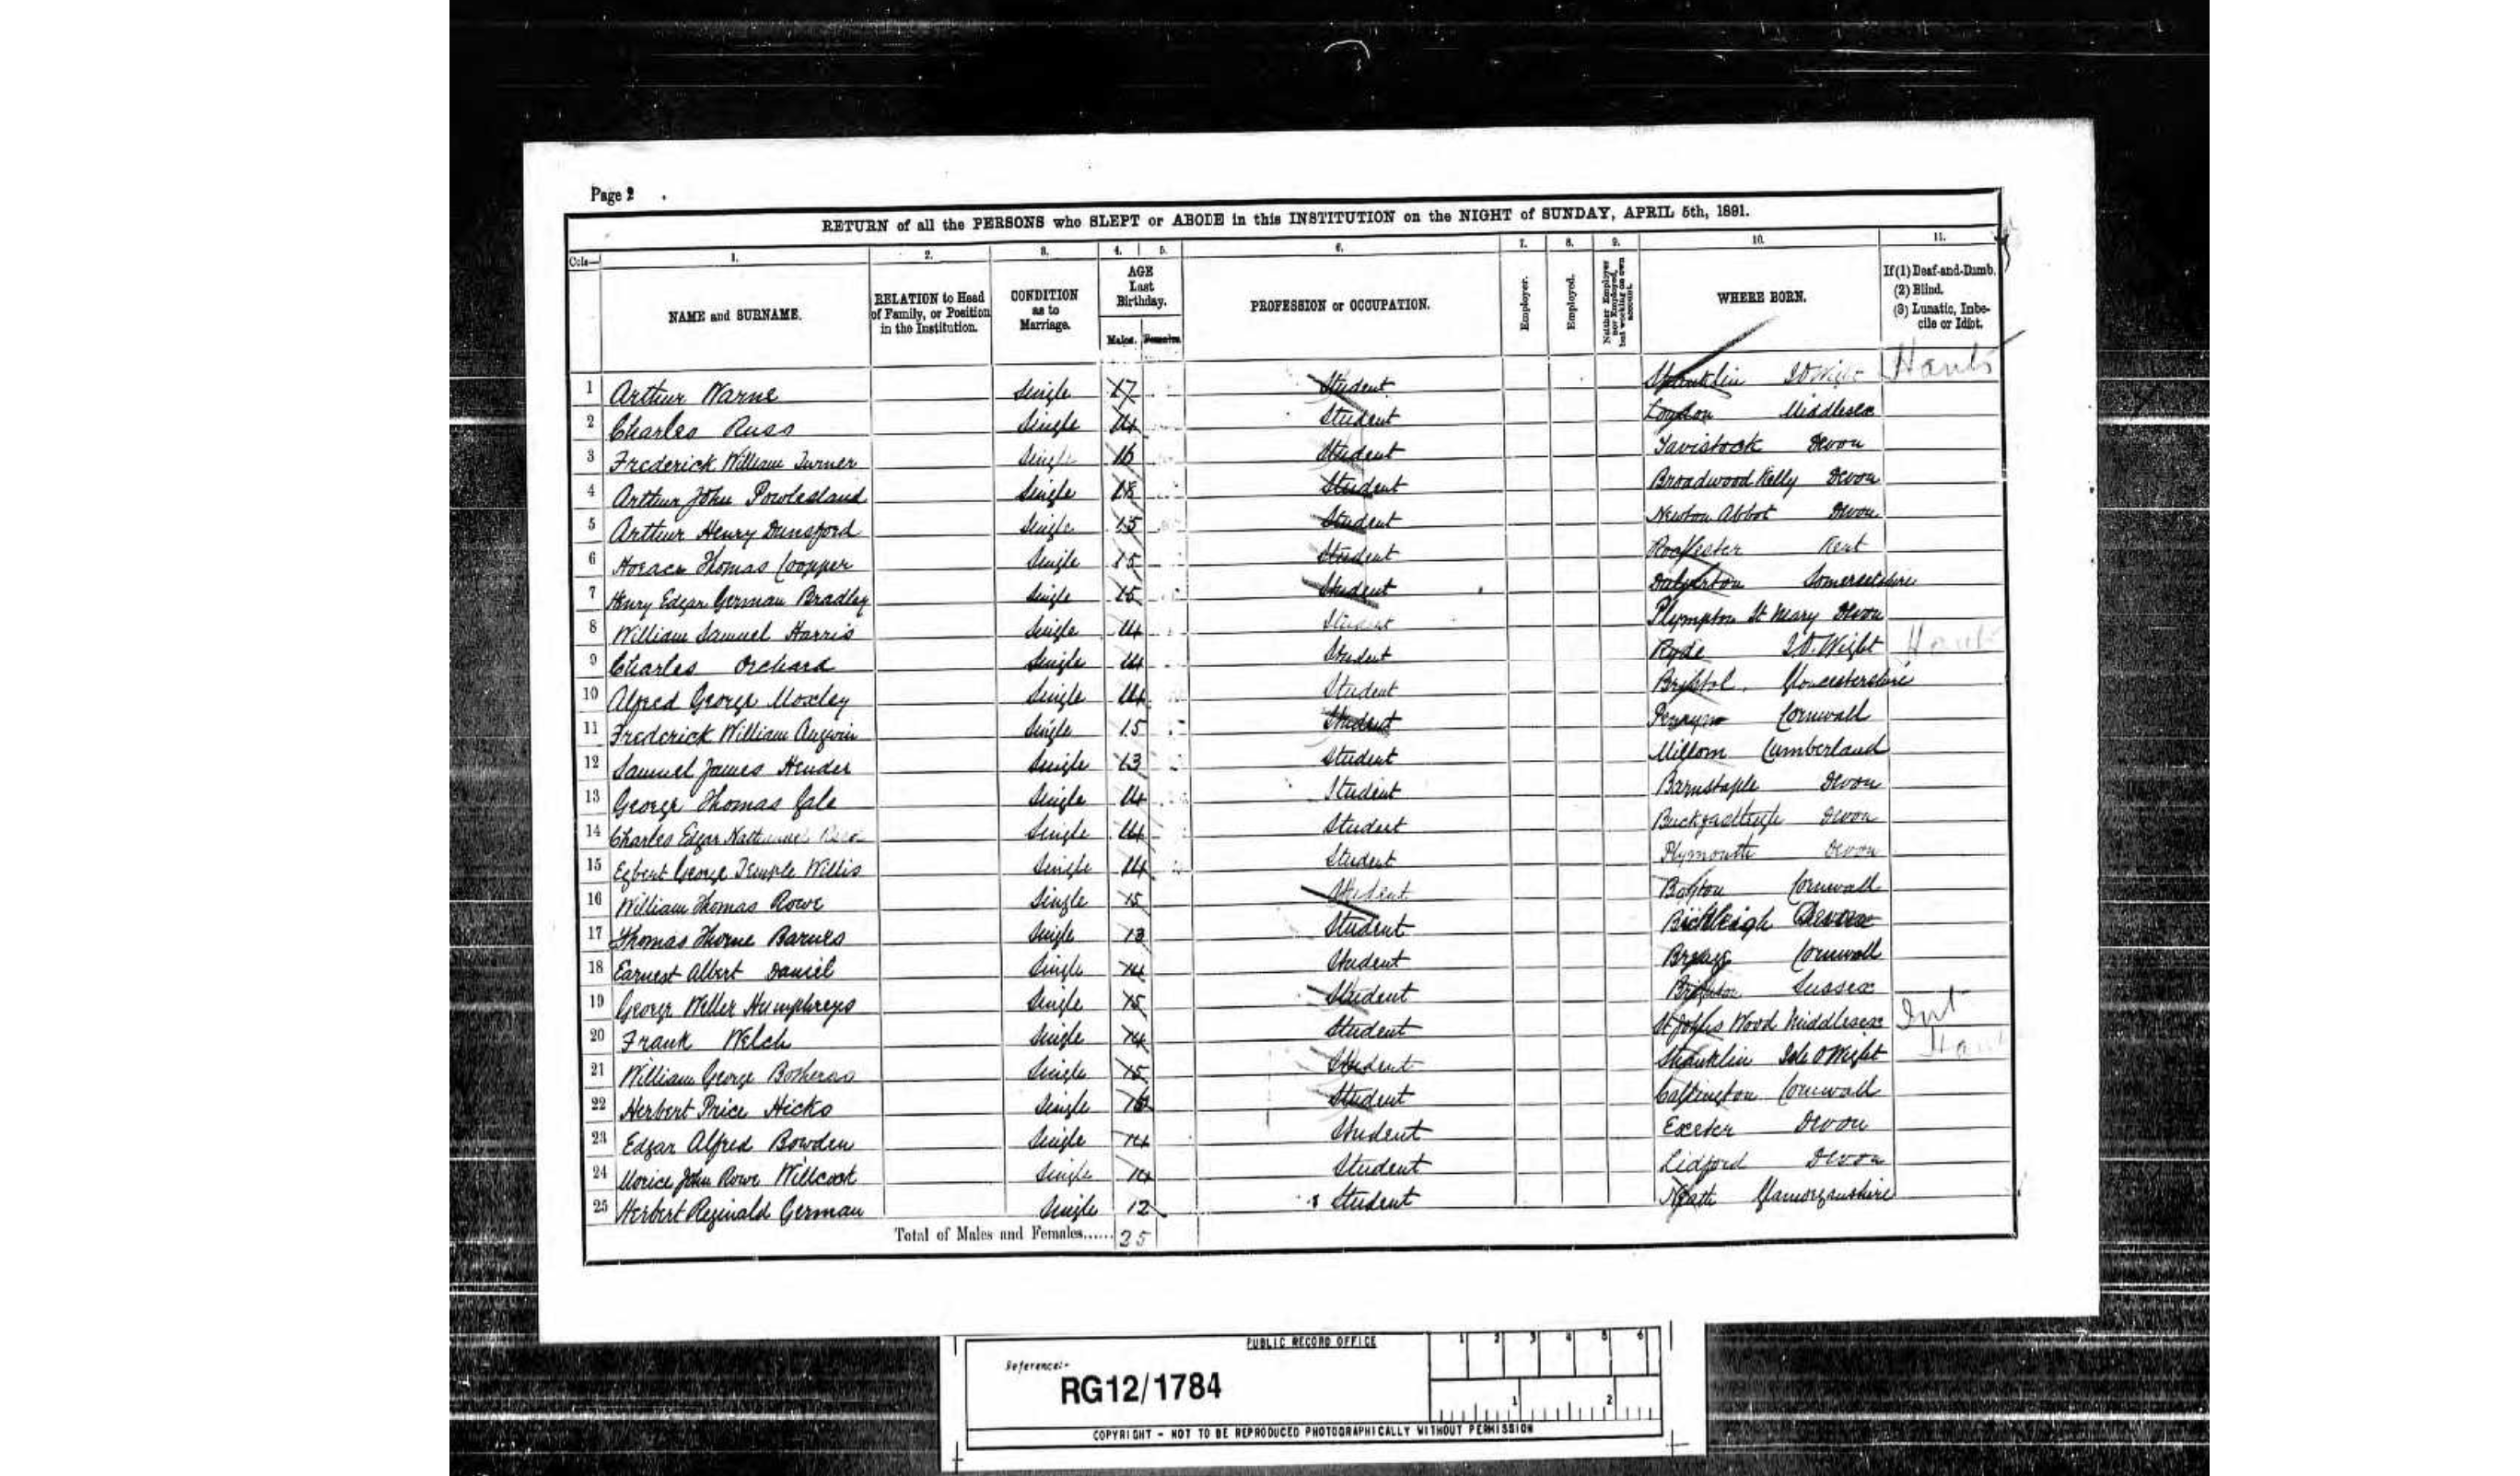 Page 2
RETURN of all the PERSONS who SLEPT or ABODE in this INSTITUTION on the NIGHT of SUNDAY, APRIL 5th, 1891.
Cols— 1. 2. 3. 4. 5. 6. 7. 8. 9. 10. 11.
NAME and SURNAME. RELATION to Head of Family, or Position in the Institution. CONDITION as to Marriage. AGE Last Birthday. Males. Females. PROFESSION or OCCUPATION. Employer. Employed. Neither Employer nor Employed, but working on own account. WHERE BORN. If (1) Deaf-and-Dumb. (2) Blind. (3) Lunatic, Imbecile or Idiot.
1 Arthur Warne Single 17 Student Shanklin I O Wight Hants
2 Charles Russ Single 14 Student London Middlesex
3 Frederick William Turner Single 16 Student Tavistock Devon
4 Arthur John Powlesland Single 18 Student Broadwood Kelly Devon
5 Arthur Henry Dunsford Single 15 Student Newton Abbot Devon
6 Horace Thomas Coopper Single 15 Student Rochester Kent
7 Henry Edgar German Bradley Single 15 Student Dulverton Somersetshire
8 William Samuel Harris Single 14 Student Plympton St Mary Devon
9 Charles Orchard Single 14 Student Ryde I.O. Wight Hants
10 Alfred George Moxley Single 14 Student Bristol. Gloucestershire
11 Frederick William Angwin Single 15 Student Penryn Cornwall
12 Samuel James Hender Single 13 Student Millom Cumberland
13 George Thomas Gale Single 14 Student Barnstaple Devon
14 Charles Edgar Nathaniel Single 14 Student Buckfastleigh Devon
15 Egbert George Temple Willis Single 14 Student Plymouth Devon
16 William Thomas Rowe Single 15 Student Cornwall
17 Thomas Thorne Barnes Single 13 Student Bickleigh Devon
18 Earnest Albert Daniel Single 14 Student Breage Cornwall
19 George Weller Humphreys Single 15 Student Brighton Sussex
20 Frank Welch Single 14 Student St Johns Wood Middlesex Int
21 William George Single 15 Student Shanklin Isle O Wight Hants
22 Herbert Price Hicks Single 16 Student Callington Cornwall
23 Edgar Alfred Bowden Single 14 Student Exeter Devon
24 Morice John Rowe Willcock Single 14 Student Lidford Devon
25 Herbert Reginald German Single 12 Student Neath Glamorganshire
Total of Males and Females...... 25
PUBLIC RECORD OFFICE 1 2 3 4 5 6
Reference:-
RG12/1784
1 2
COPYRIGHT - NOT TO BE REPRODUCED PHOTOGRAPHICALLY WITHOUT PERMISSION